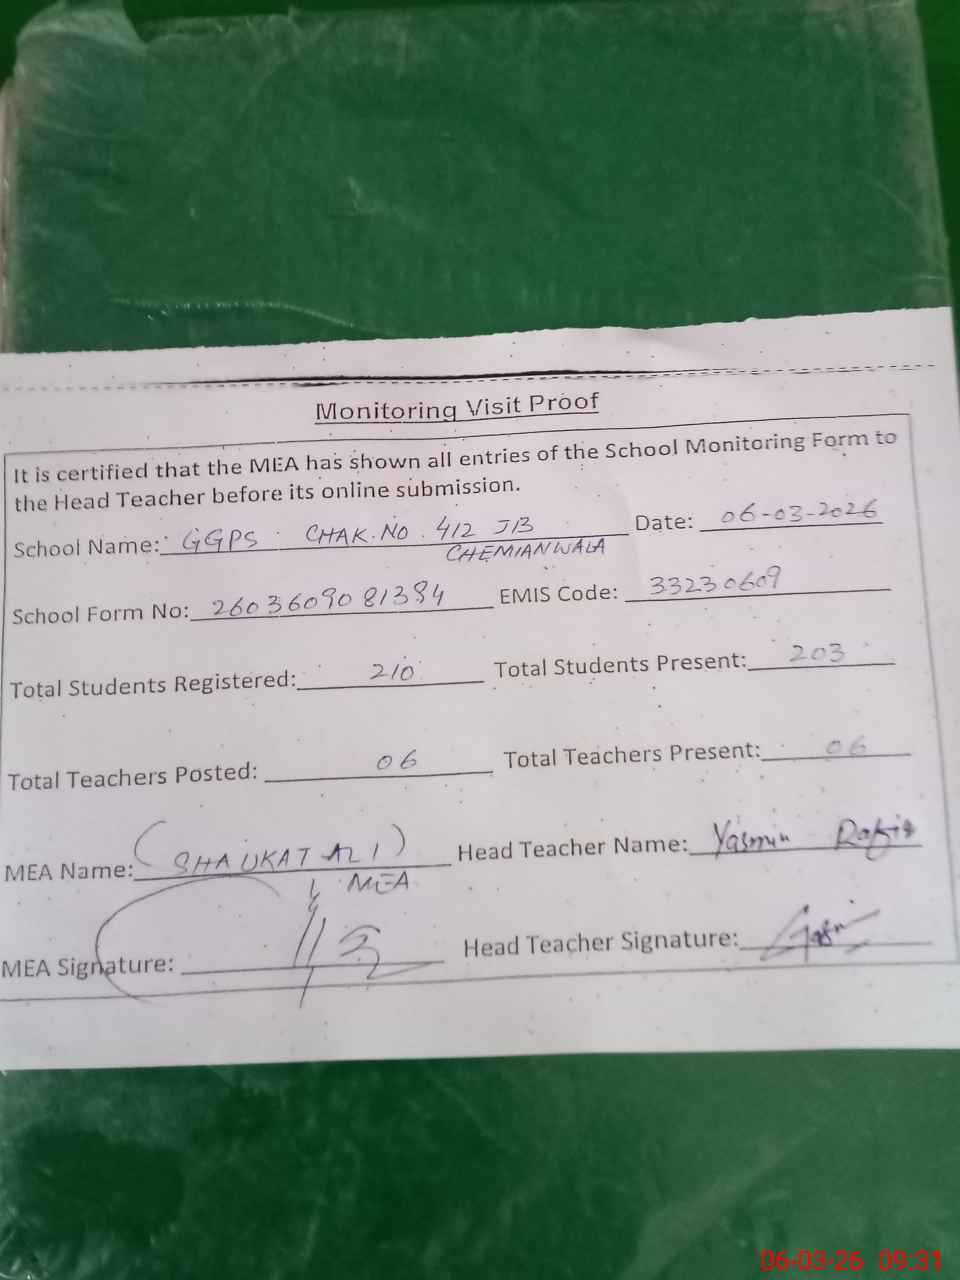 Monitoring Visit Proof
It is certified that the MEA has shown all entries of the School Monitoring Form to
the Head Teacher before its online submission.
School Name: GGPS CHAK.NO. 412 JB Date: 06-03-2026
CHEMIANWALA
School Form No: 2603609081384 EMIS Code: 33230609
Total Students Registered: 210 Total Students Present: 203
Total Teachers Posted: 06 Total Teachers Present: 06
MEA Name: (SHAUKAT ALI) Head Teacher Name: Yasmin
MEA
MEA Signature: Head Teacher Signature:
06-03-26 09:31